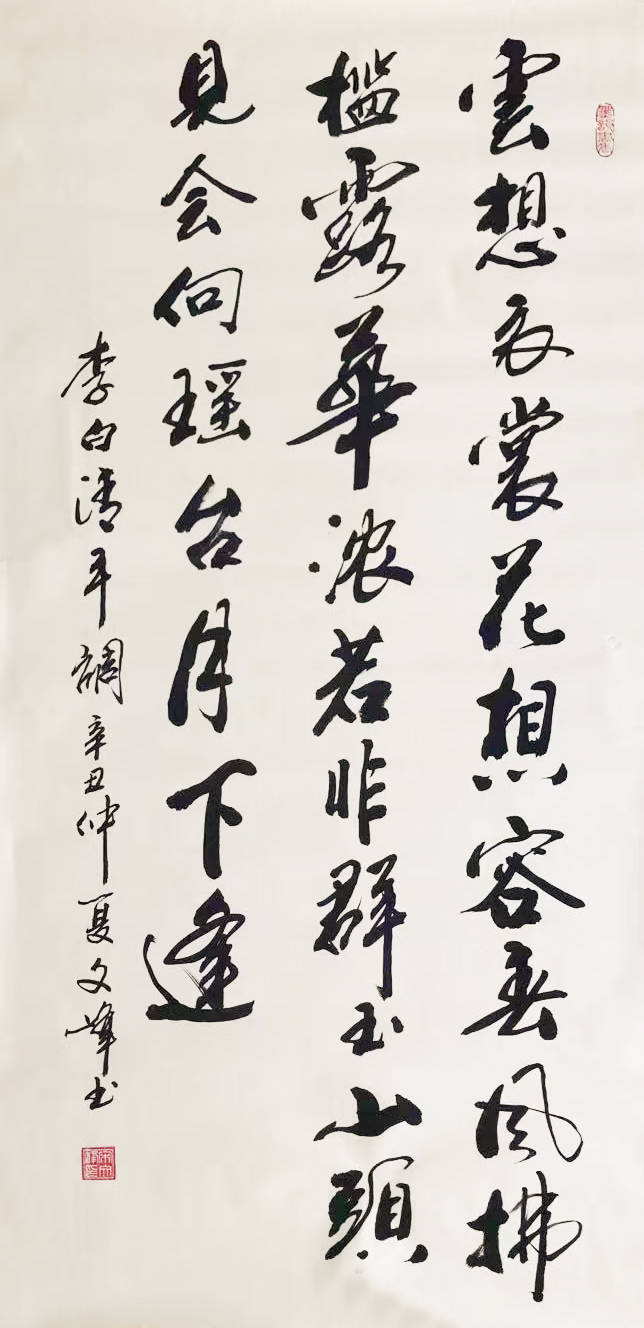 雲想衣裳花想容春风拂
槛露華浓若非群玉山頭
見会向瑶台月下逢
李白清平調辛丑仲夏文峰书